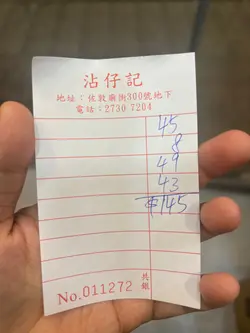 沾仔記
地址：佐敦廟街300號地下
電話：2730 7204
45
8
49
43
$145
共銀
No.011272